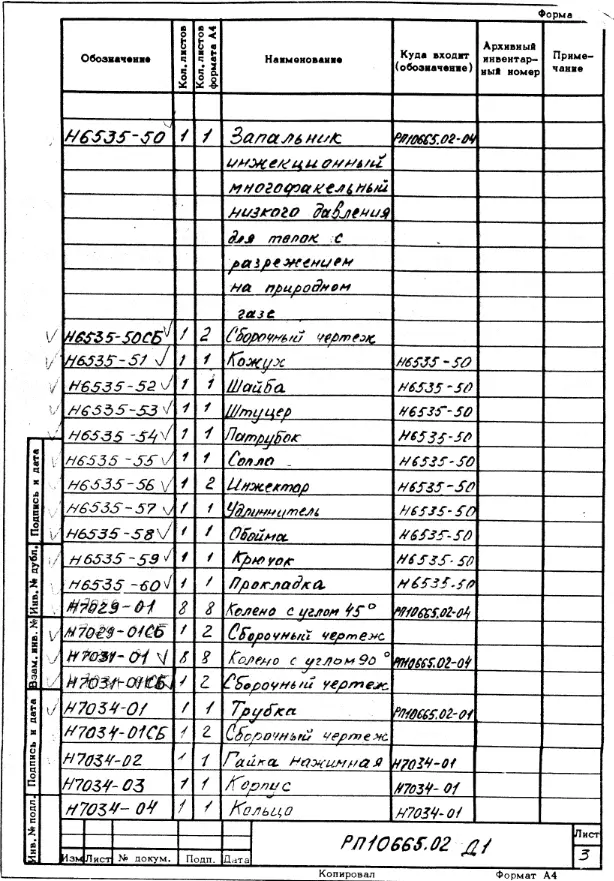 Форма
Обозначение Кол. листов Кол. листов формата А4 Наименование Куда входит (обозначение) Архивный инвентарный номер Примечание
Н6535-50 1 1 Запальник РП10665.02-04
инжекционный
многофакельный
низкого давления
для топок с
разрежением
на природном
газе
Н6535-50СБ 1 2 Сборочный чертеж
Н6535-51 1 1 Кожух Н6535-50
Н6535-52 1 1 Шайба Н6535-50
Н6535-53 1 1 Штуцер Н6535-50
Н6535-54 1 1 Патрубок Н6535-50
Н6535-55 1 1 Сопло Н6535-50
Н6535-56 1 2 Инжектор Н6535-50
Н6535-57 1 1 Удлиннитель Н6535-50
Н6535-58 1 1 Обойма Н6535-50
Н6535-59 1 1 Крючок Н6535-50
Н6535-60 1 1 Прокладка Н6535-50
Н7029-01 8 8 Колено с углом 45° РП10665.02-04
Н7029-01СБ 1 2 Сборочный чертеж
Н7031-01 8 8 Колено с углом 90° РП10665.02-04
Н7031-01СБ 1 2 Сборочный чертеж
Н7034-01 1 1 Трубка РП10665.02-01
Н7034-01СБ 1 2 Сборочный чертеж
Н7034-02 1 1 Гайка нажимная Н7034-01
Н7034-03 1 1 Корпус Н7034-01
Н7034-04 1 1 Кольцо Н7034-01
Подпись и дата
Инв. № дубл.
Взам. инв. №
Подпись и дата
Инв. № подл.
Изм Лист № докум. Подп. Дата
РП10665.02 Д1
Лист
3
Копировал Формат А4